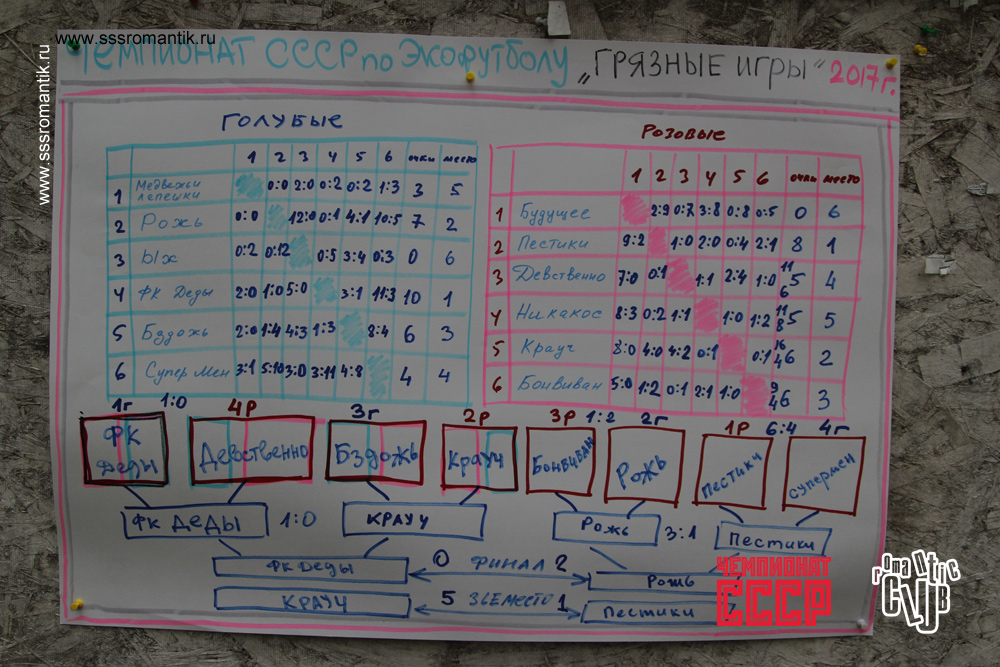 www.sssromantik.ru
www.sssromantik.ru
ЧЕМПИОНАТ СССР по Экофутболу „ГРЯЗНЫЕ ИГРЫ“ 2017г.
ГОЛУБЫЕ
1 2 3 4 5 6 очки место
1 Медвежьи лепешки 0:0 2:0 0:2 0:2 1:3 3 5
2 Рожь 0:0 12:0 0:1 4:1 10:5 7 2
3 Ых 0:2 0:12 0:5 3:4 0:3 0 6
4 ФК Деды 2:0 1:0 5:0 3:1 11:3 10 1
5 Бздожь 2:0 1:4 4:3 1:3 8:4 6 3
6 Супер Мен 3:1 5:10 3:0 3:11 4:8 4 4
РОЗОВЫЕ
1 2 3 4 5 6 очки место
1 Будущее 2:9 0:7 3:8 0:8 0:5 0 6
2 Пестики 9:2 1:0 2:0 0:4 2:1 8 1
3 Девственно 7:0 0:1 1:1 2:4 1:0 11 6 5 4
4 Никакос 8:3 0:2 1:1 1:0 1:2 11 8 5 5
5 Крауч 8:0 4:0 4:2 0:1 0:1 16 4 6 2
6 Бонвиван 5:0 1:2 0:1 2:1 1:0 9 4 6 3
1г 1:0 4Р 3г 2Р 3Р 1:2 2г 1Р 6:4 4г
ФК Деды Девственно Бздожь Крауч Бонвиван Рожь Пестики Супермен
ФК Деды 1:0 КРАУЧ Рожь 3:1 Пестики
ФК Деды 0 ФИНАЛ 2 Рожь
КРАУЧ 5 3ЬЕ МЕСТО 1 Пестики
ЧЕМПИОНАТ
СССР
romantic
CLUB